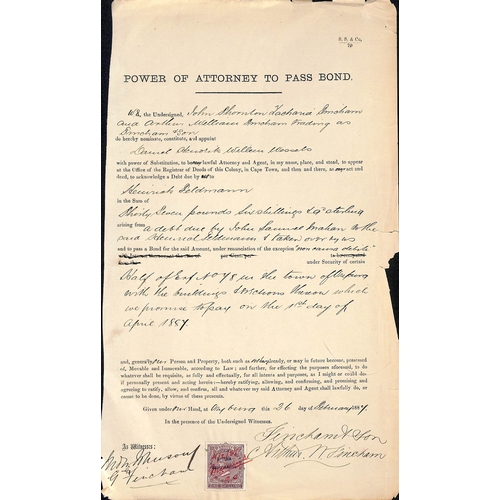 R. S. & Co.
POWER OF ATTORNEY TO PASS BOND.
WE, the Undersigned, John Thornton Zacharia Fincham
and Arthur William Fincham Trading as
Fincham & Son
do hereby nominate, constitute, and appoint
Daniel Hendrik Willem Wessels
with power of Substitution, to be our lawful Attorney and Agent, in my name, place, and stead, to appear
at the Office of the Registrar of Deeds of this Colony, in Cape Town, and then and there, as my act and
deed, to acknowledge a Debt due by us to
Heinrich Feldmann
in the Sum of
Thirty Seven pounds Six Shillings & sterling
arising from a debt due by John Samuel to the
said Heinrich Feldmann & taken over by us
and to pass a Bond for the said Amount, under renunciation of the exception "non causa debiti"
under Security of certain
Half of Erf No 78 in the town of
with the buildings & erections thereon which
we promise to pay on the 1st day of
April 1887
and, generally, our Person and Property, both such as already, or may in future become, possessed
of, Movable and Immovable, according to Law; and further, for effecting the purposes aforesaid, to do
whatever shall be requisite, as fully and effectually, for all intents and purposes, as I might or could do
if personally present and acting herein:—hereby ratifying, allowing, and confirming, and promising and
agreeing to ratify, allow, and confirm, all and whatever my said Attorney and Agent shall lawfully do, or
cause to be done, by virtue of these presents.
Given under our Hand, at this 26 day of February
In the presence of the Undersigned Witnesses.
Fincham & Son
As Witnesses:
Arthur W Fincham
G Fincham